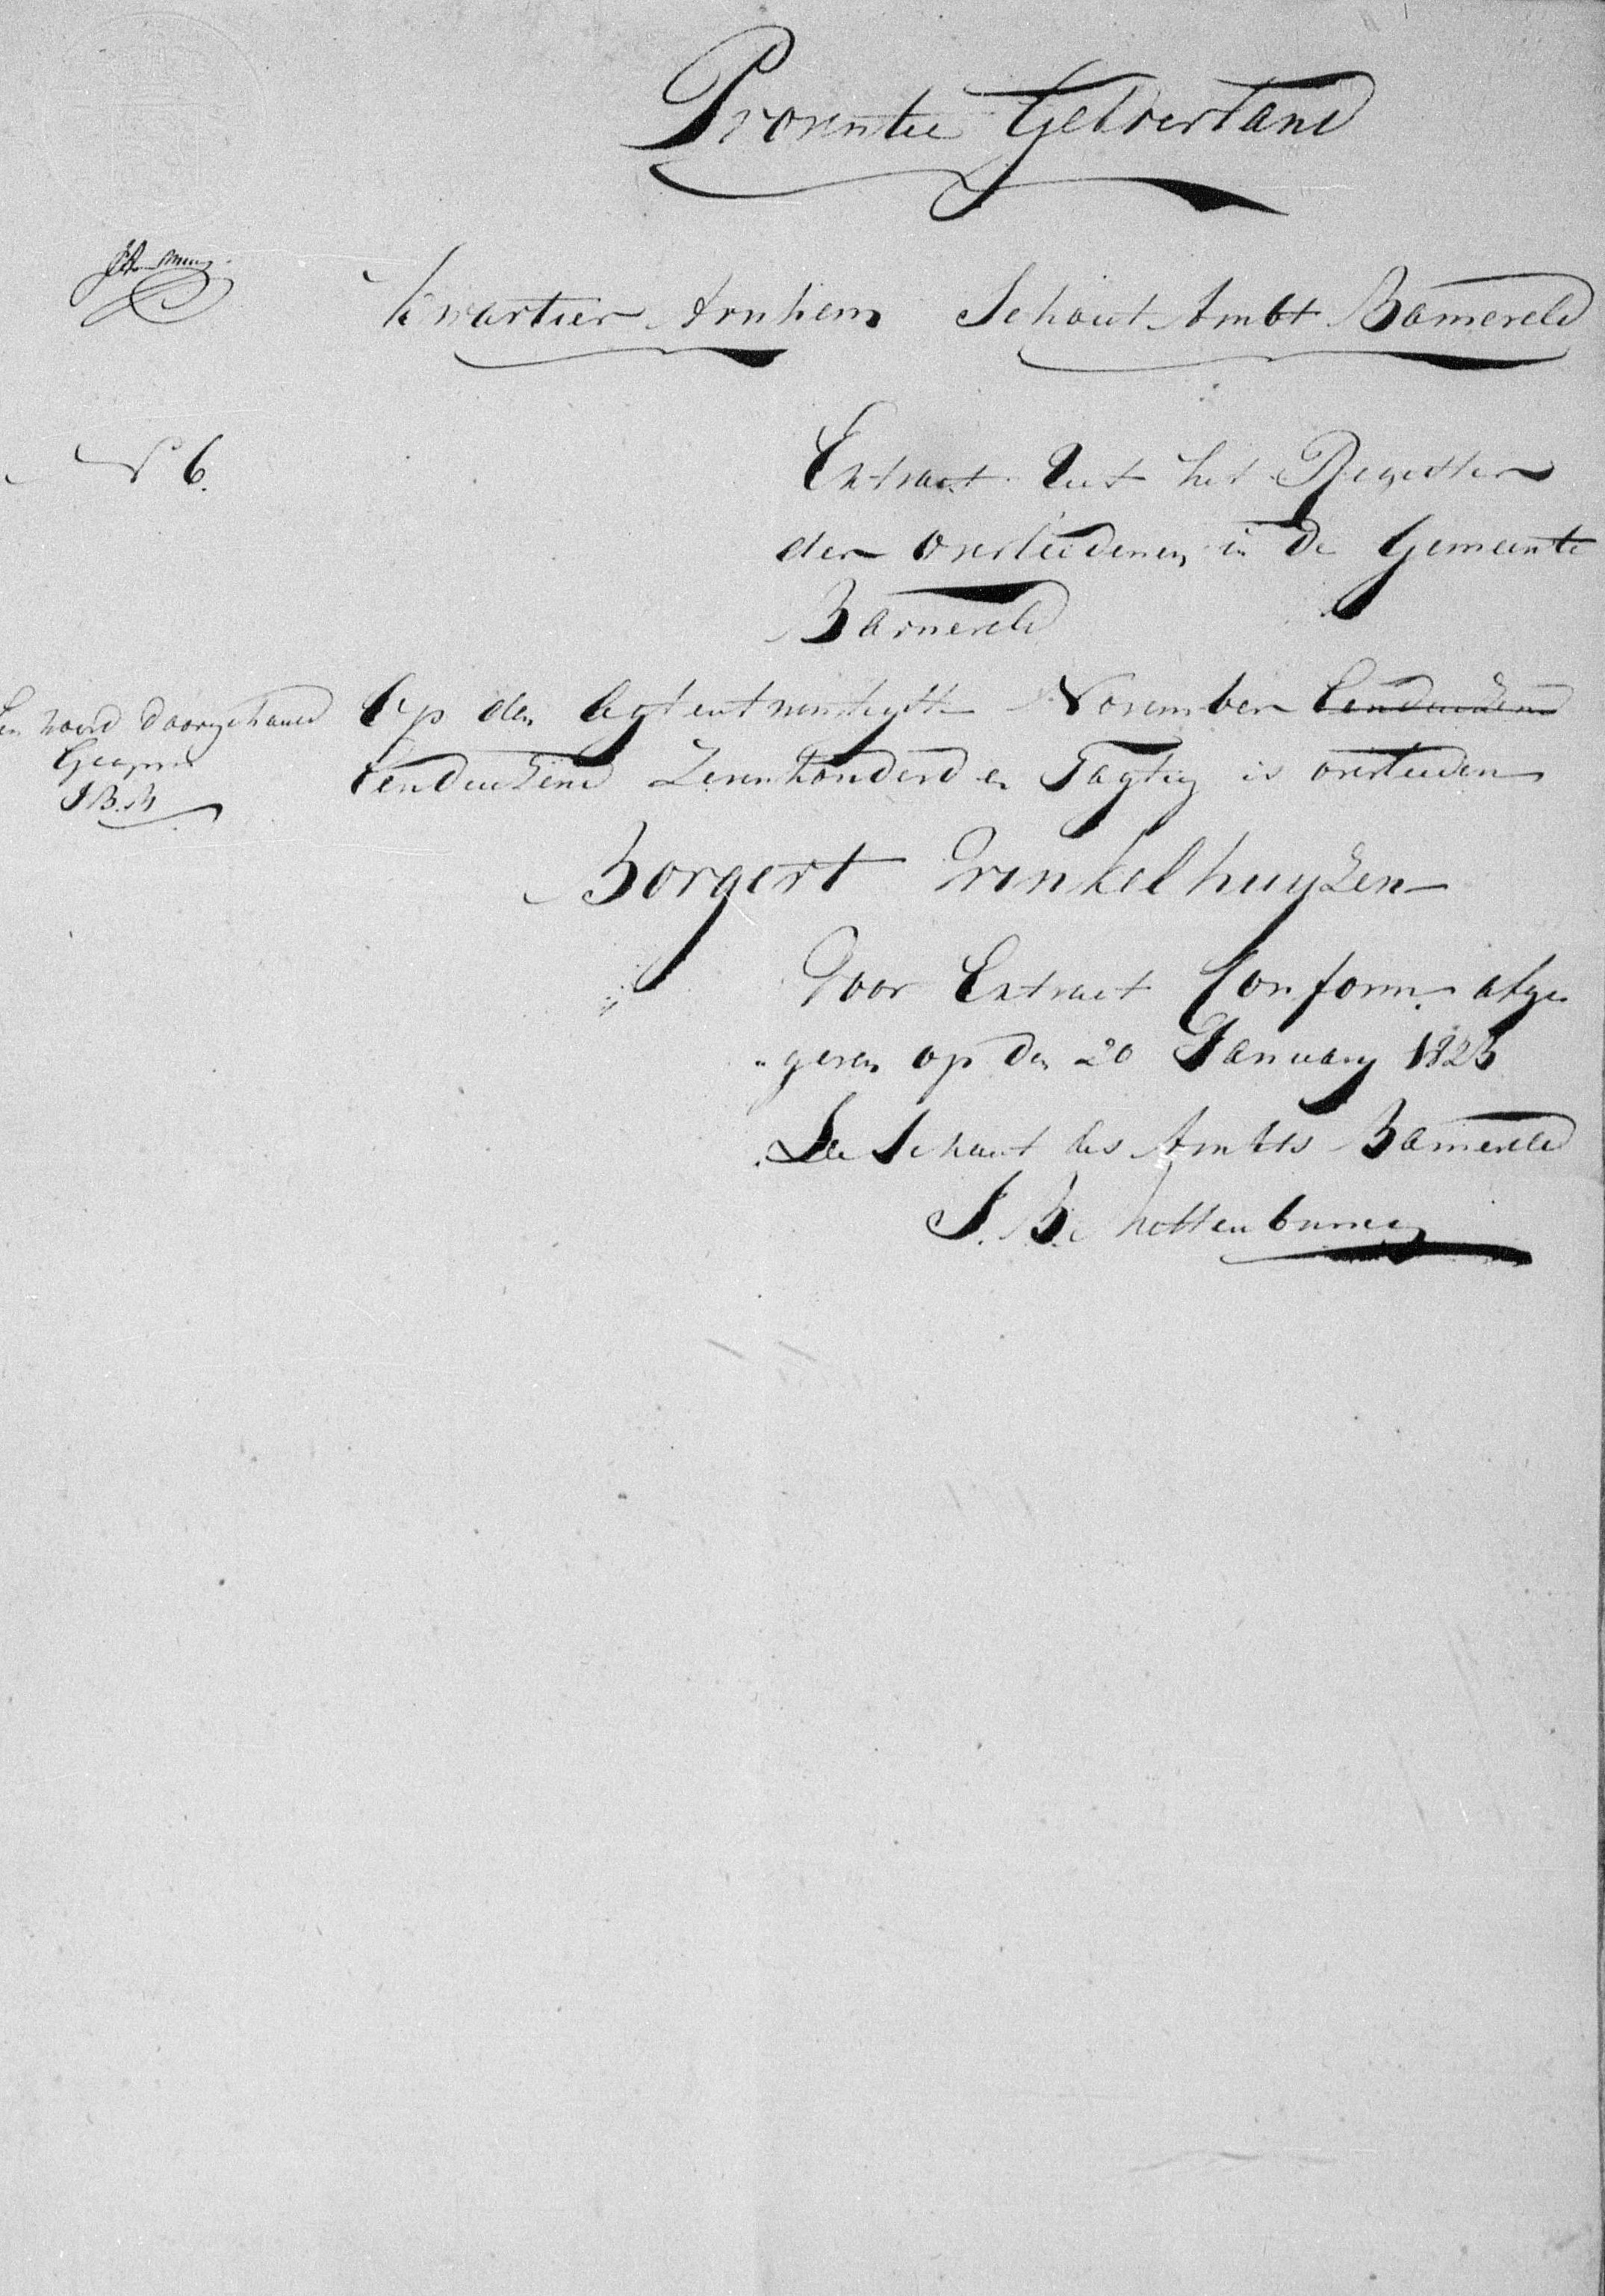 Provintie Gelderland
Kwartier Arnhem Schout Ambt Barneveld
N 6.
Extract Uit het Register
der overleedenen in de Gemeente
Barneveld
Een woord doorgehaald
Geappr
J B. N
Op den Agtentwintigste November Eenduizend
Eenduizend Zevenhonderd en Tagtig is overleeden
Borgert Prinkelhuyzen
Voor Extract Conform. afge
"geven op den 20 January 1823
De Schout des Ambts Barneveld
J. B.